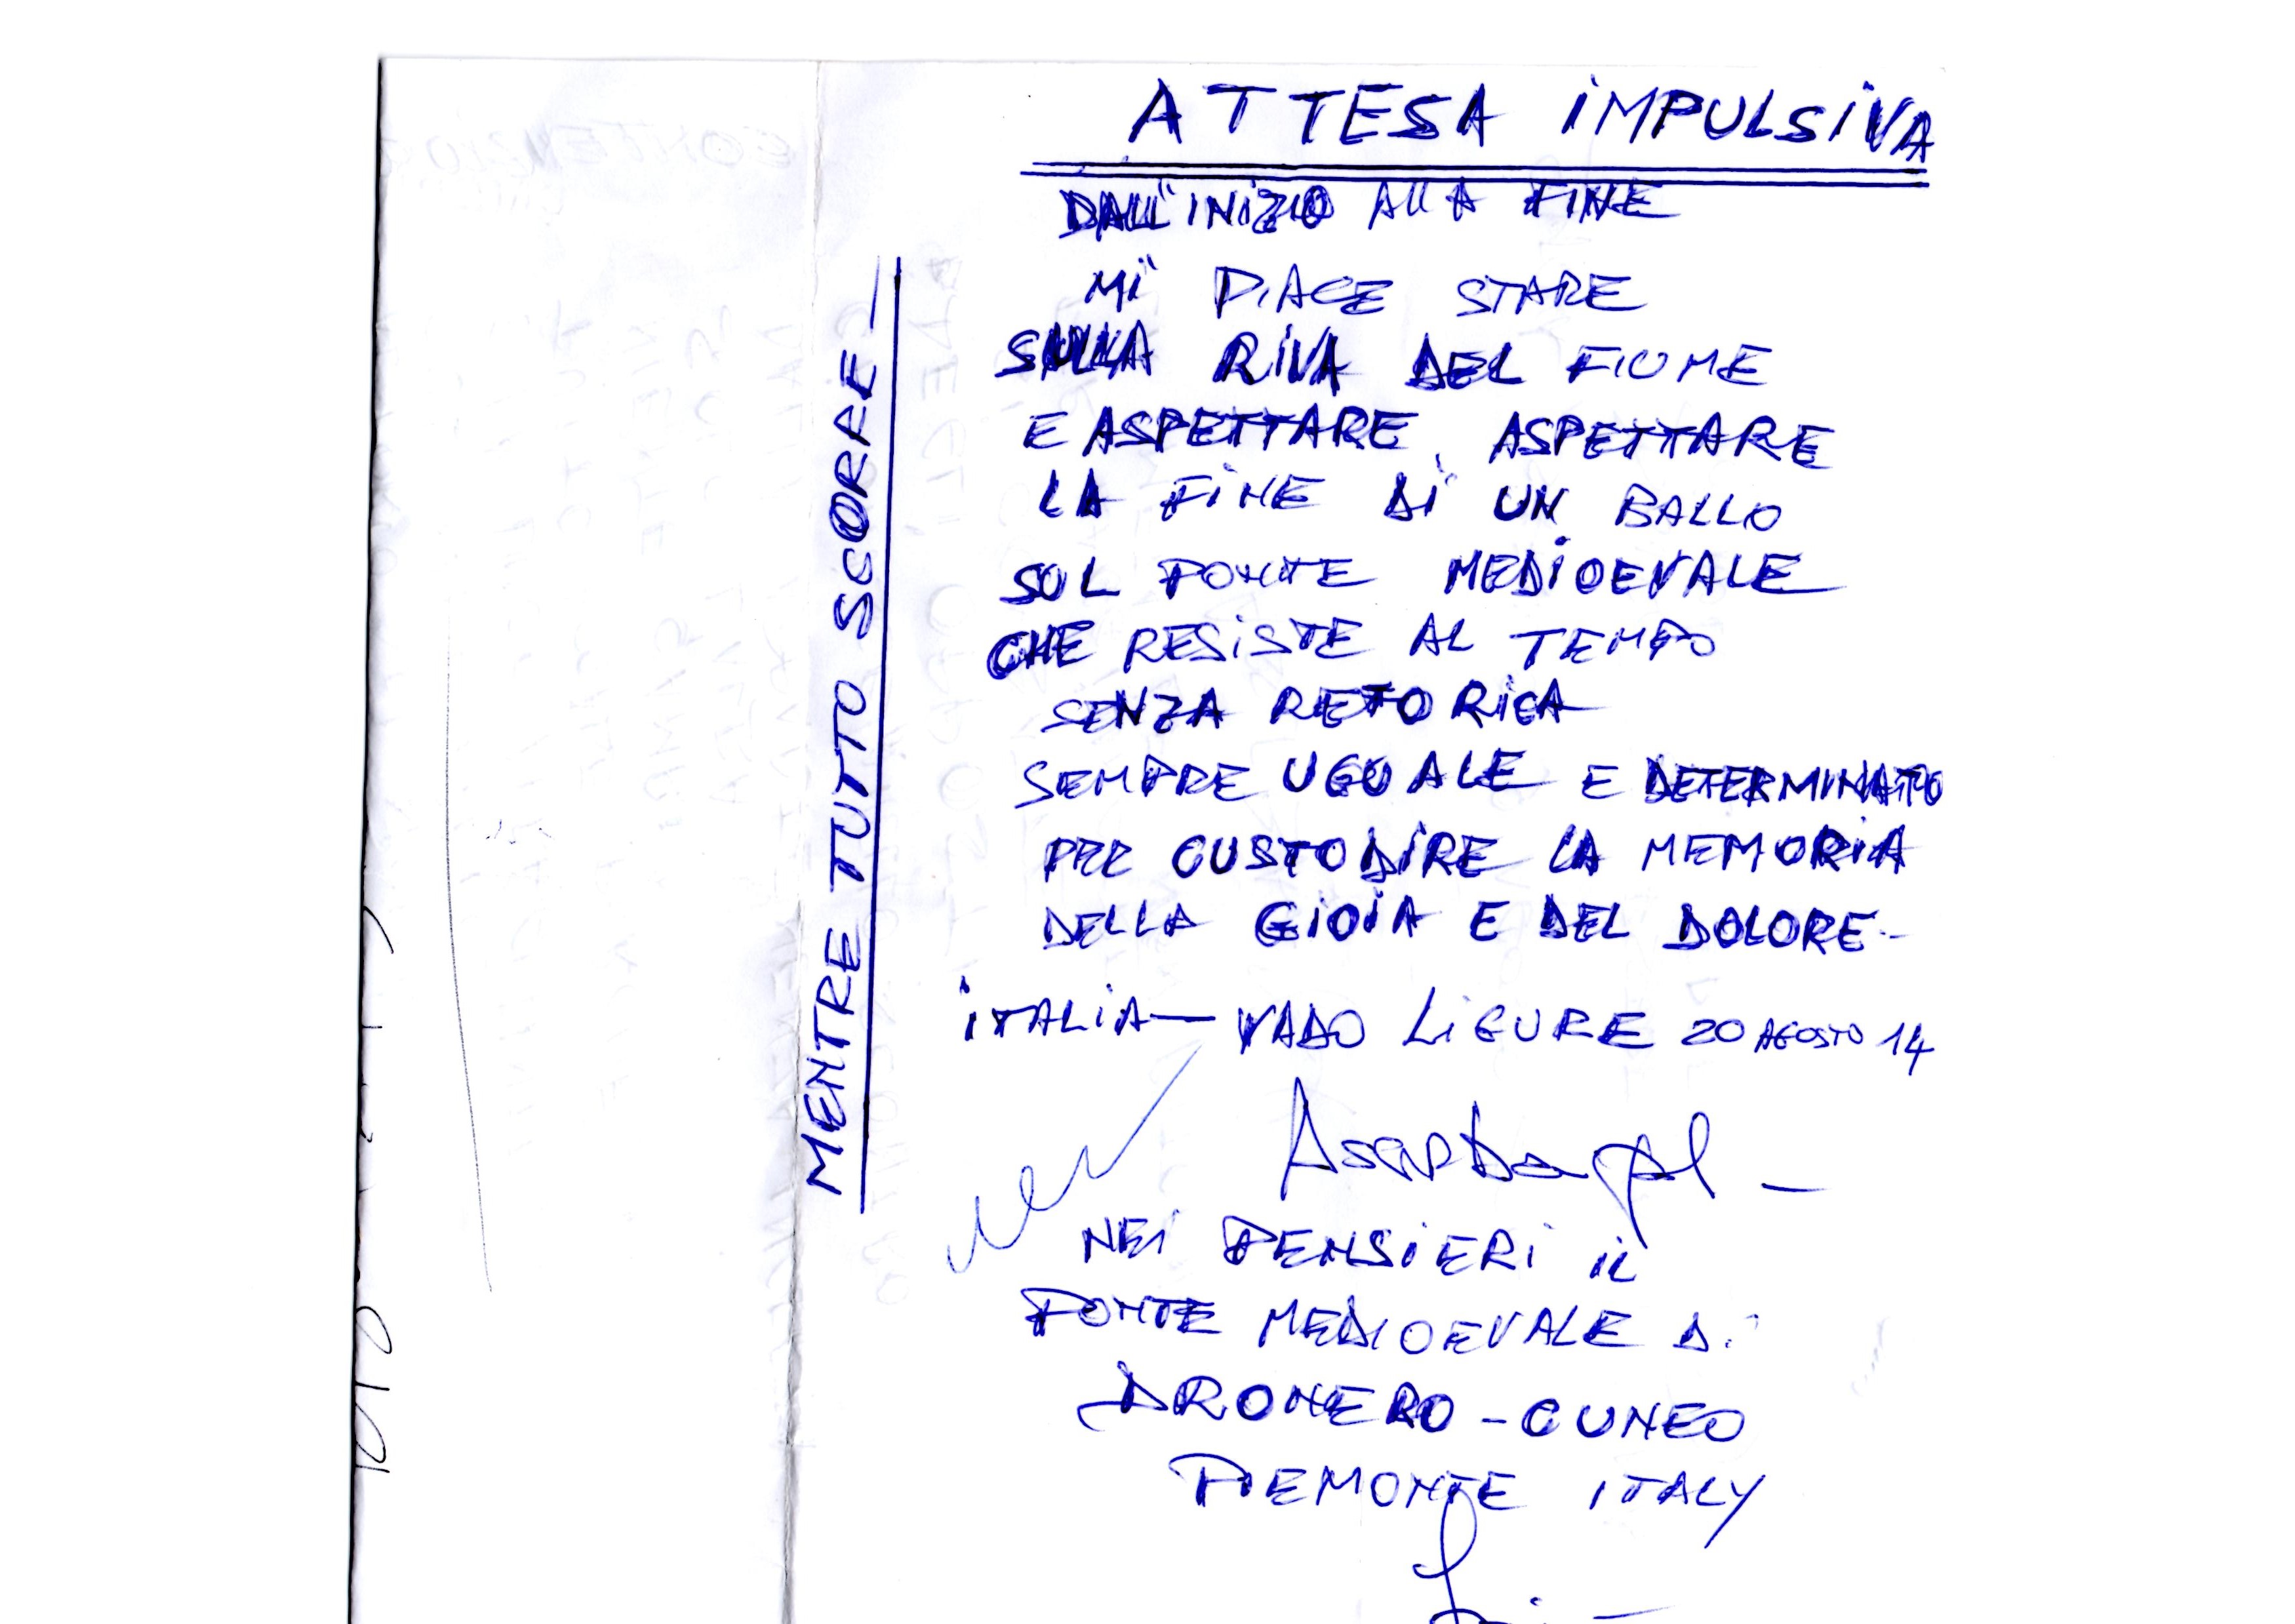 ATTESA iMPULSiVA
DALL'INIZIO ALLA FINE
Mi PIACE STARE
SULLA RIVA DEL FIUME
E ASPETTARE, ASPETTARE
LA FINE Di UN BALLO
SUL PONTE MEDIOEVALE
CHE RESISTE AL TEMPO
SENZA RETORICA
SEMPRE UGUALE E DETERMINATO
PER CUSTODIRE LA MEMORIA
DELLA GIOIA E DEL DOLORE-
ITALIA — VADO LIGURE 20 AGOSTO 14
NEI PENSIERI IL
PONTE MEDIOEVALE Di
DRONERO - CUNEO
PIEMONTE ITALY
MENTRE TUTTO SCORRE —